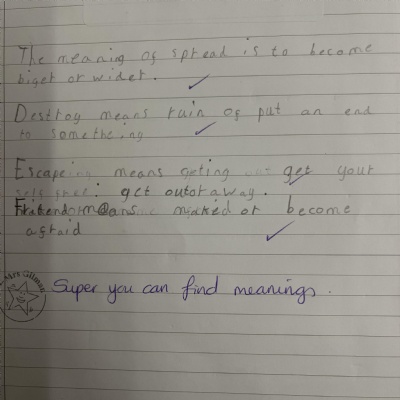 The meaning of spread is to become
biger or wider.
Destroy means ruin of put an end
to something
Escape means get your
self free. get out or away.
means maked or become
afraid
Mrs
Super you can find meanings.